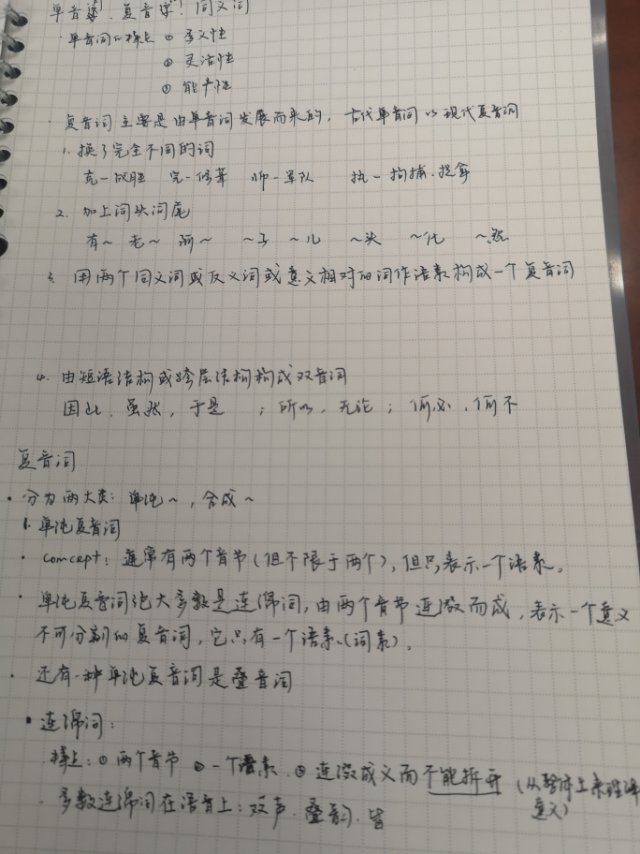 单音词、复音词、同义词
单音词的特点 ① 多义性
② 灵活性
③ 能产性
· 复音词主要是由单音词发展而来的，古代单音词以现代复音词
1. 换了完全不同的词
克－战胜 完－修葺 师－军队 执－拘捕、捉拿
2. 加上词头词尾
有～ 老～ 阿～ ～子 ～儿 ～头 ～化 ～然
3. 用两个同义词或反义词或意义相对的词作语素构成一个复音词
4. 由短语结构或跨层结构构成双音词
因此、虽然，于是 ；所以、无论；何必、何不
复音词
· 分为两大类：单纯～，合成～
1. 单纯复音词
· concept：通常有两个音节（但不限于两个），但只表示一个语素。
· 单纯复音词绝大多数是连绵词，由两个音节连缀而成，表示一个意义
不可分割的复音词，它只有一个语素（词素）。
· 还有一种单纯复音词是叠音词
· 连绵词：
特点：① 两个音节 ② 一个语素 ③ 连缀成义而不能拆开（从整体上来理解
意义）
· 多数连绵词在语音上：双声、叠韵、皆